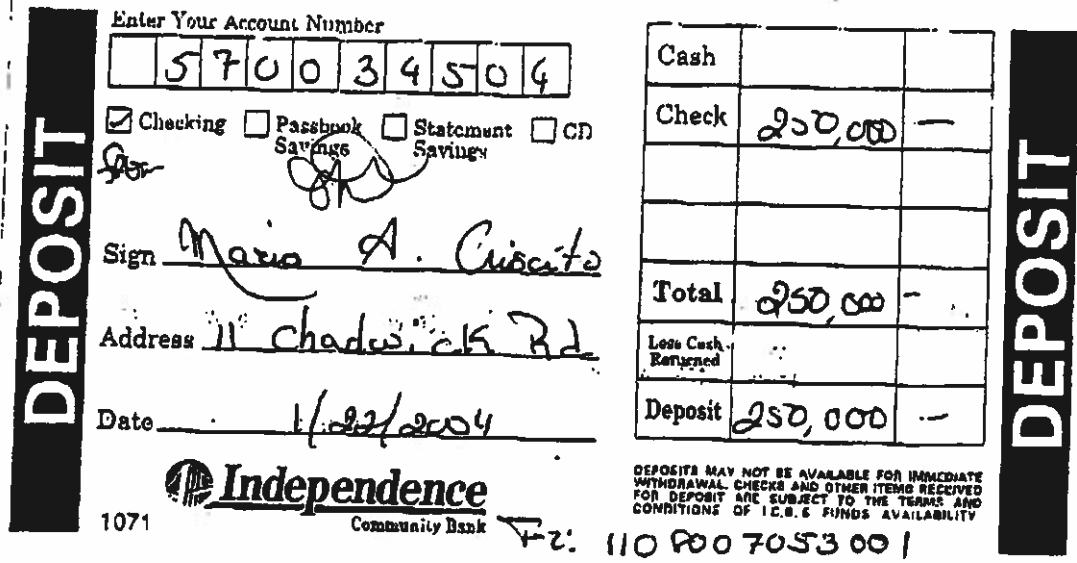 DEPOSIT
Enter Your Account Number
570034504
Checking Passbook Savings Statement Savings CD
Sign Mario A. Criscito
Address 11 Chadwick Rd
Date 1/22/2004
Independence
Community Bank
1071
Cash
Check 250,000 —
Total 250,000 -
Less Cash Returned
Deposit 250,000 —
DEPOSITS MAY NOT BE AVAILABLE FOR IMMEDIATE
WITHDRAWAL. CHECKS AND OTHER ITEMS RECEIVED
FOR DEPOSIT ARE SUBJECT TO THE TERMS AND
CONDITIONS OF I.C.B.'S FUNDS AVAILABILITY
110 800 7053 001
DEPOSIT